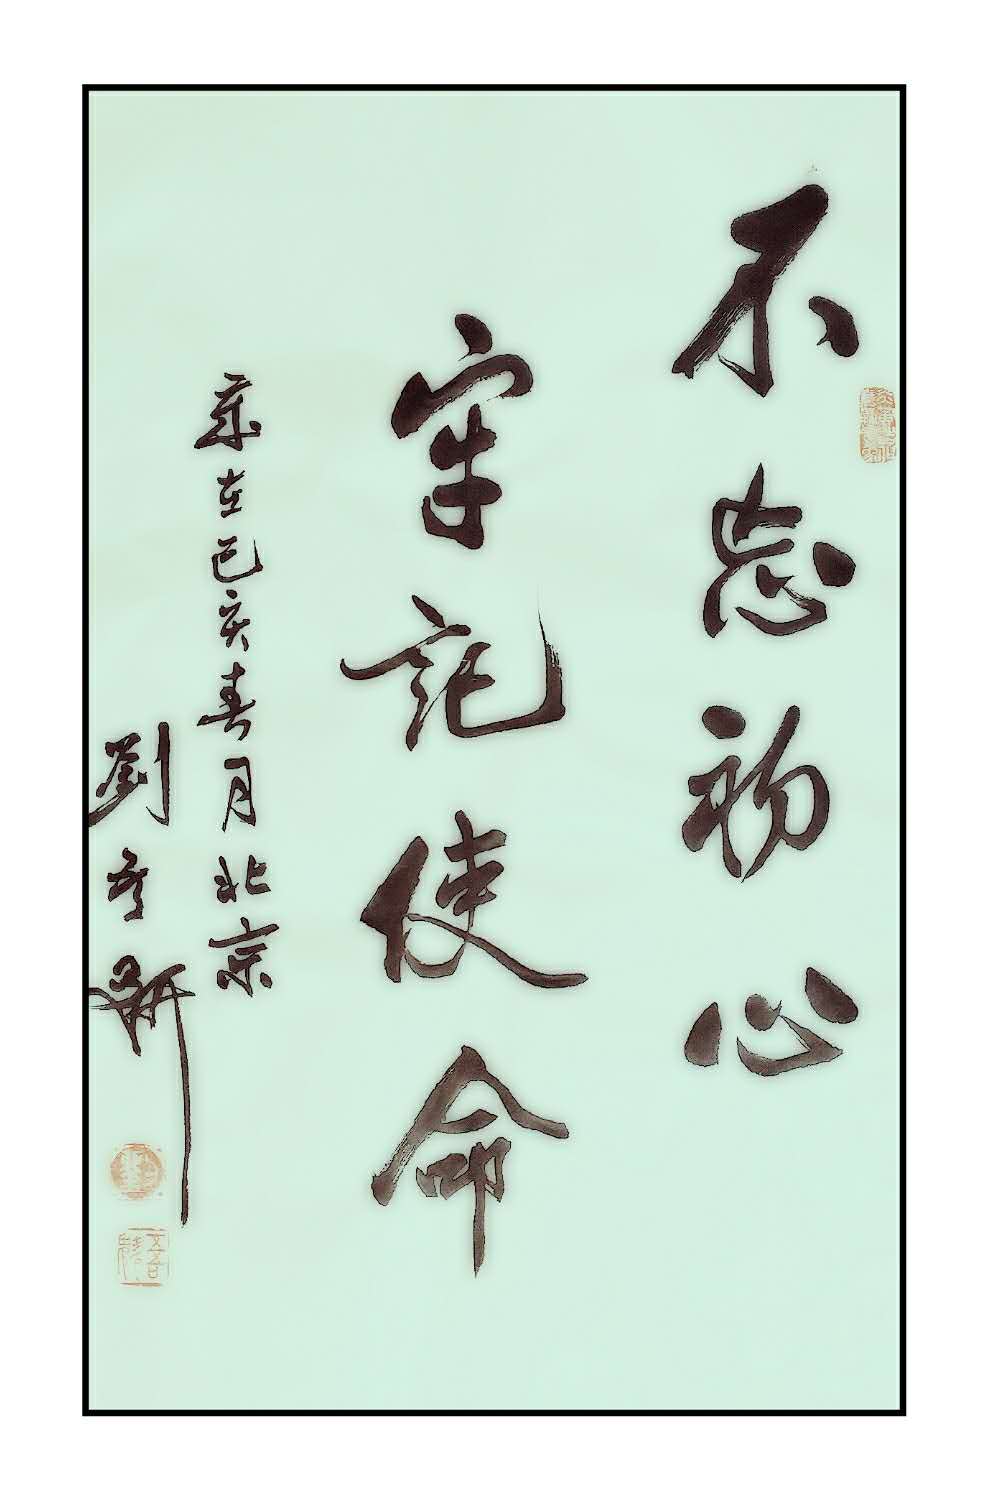 不忘初心
牢记使命
岁在己亥春月北京
劉